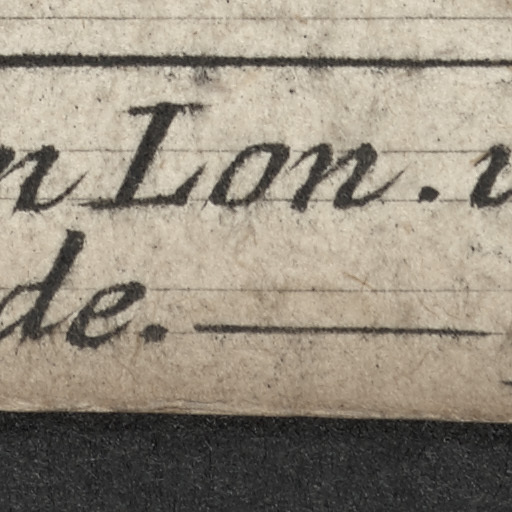 n Lon. u
de.